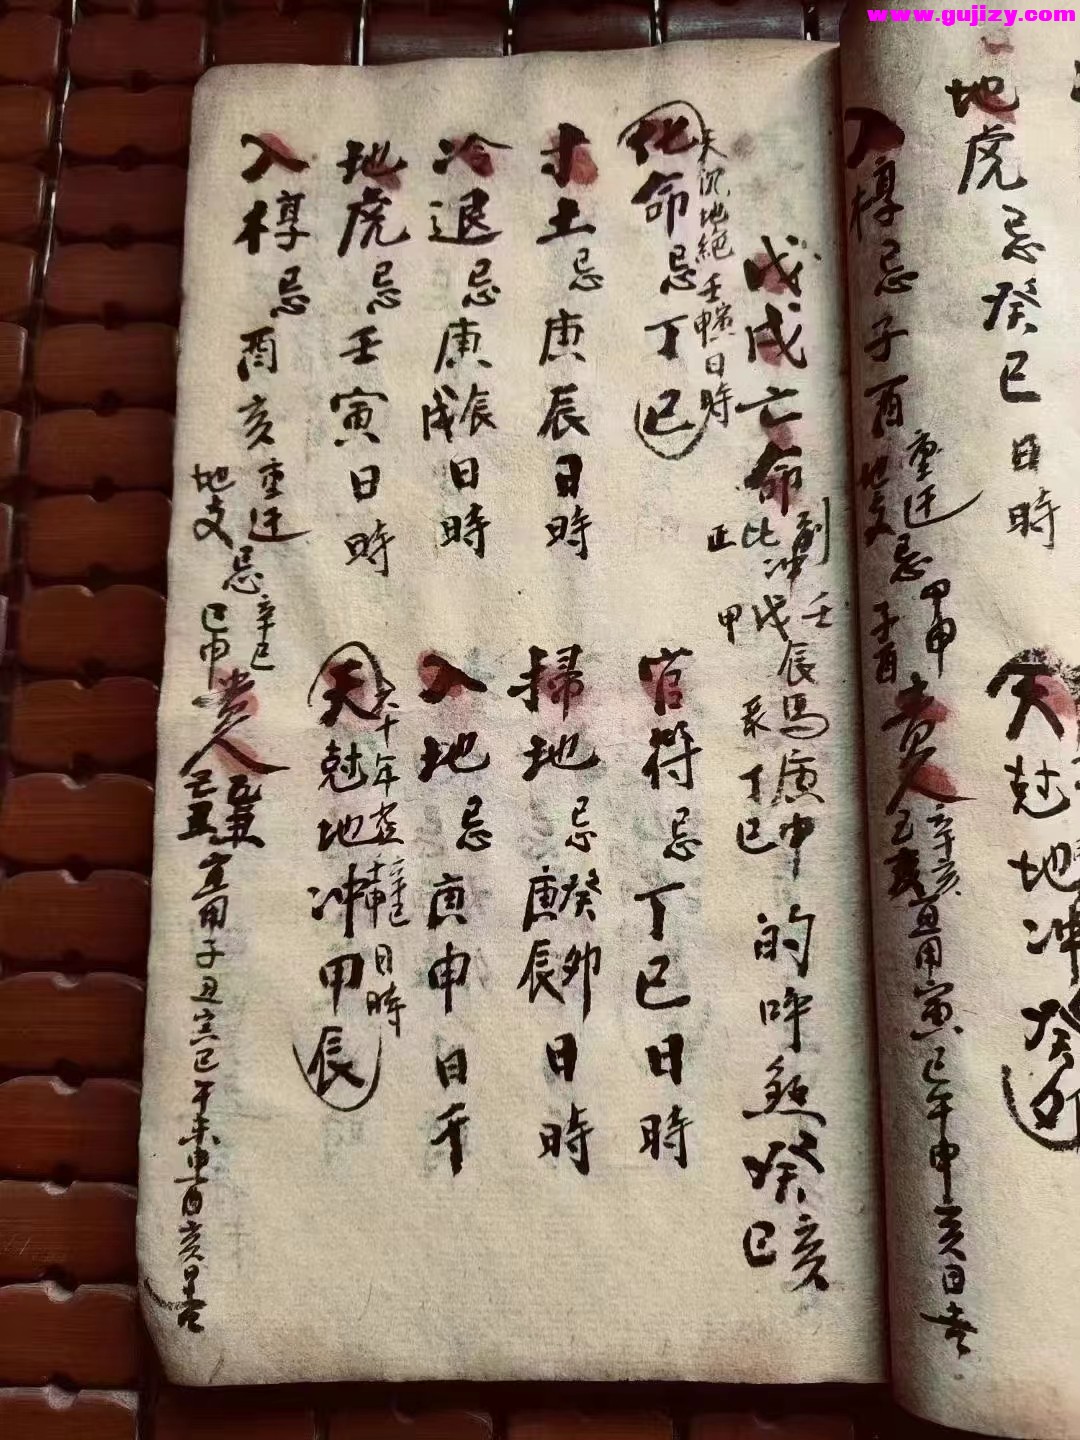 www.gujizy.com
地虎忌癸巳日時
天尅地冲癸卯
入椁忌子酉
重迁
地支
忌甲申
子酉
貴人
辛亥
宜用寅巳午申亥日吉
戊戌亡命
正比冲
甲戊壬辰馬庚申
丁巳
的呼煞癸亥
巳
天沉地絕壬寅日時
化命忌丁巳
官符忌丁巳日時
木土忌庚辰日時
掃地忌癸卯庚辰日時
冷退忌庚辰戌日時
入地忌庚申日千
地虎忌壬寅日時
天尅地冲甲辰
六十年
辛巳
日時
入椁忌酉亥
重迁
地支
忌辛巳
巳申
貴人
己丑
宜用子丑寅巳午未申酉亥日吉